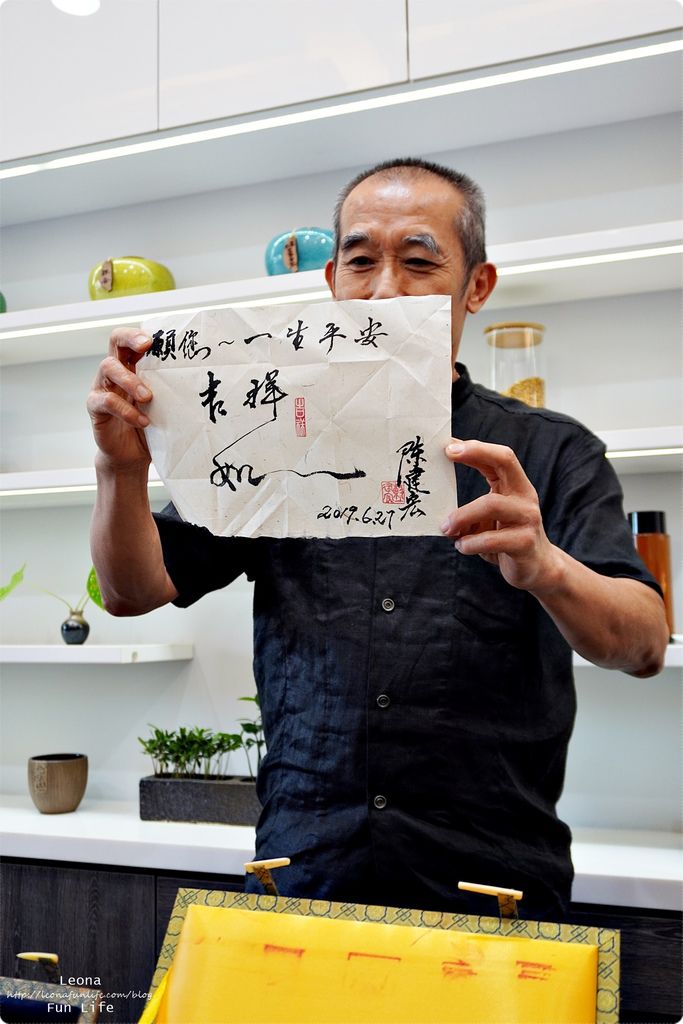 願您~一生平安
吉祥
如
吉祥
陳建宏
2019.6.27
Leona
http://leonafunlife.com/blog
Fun Life